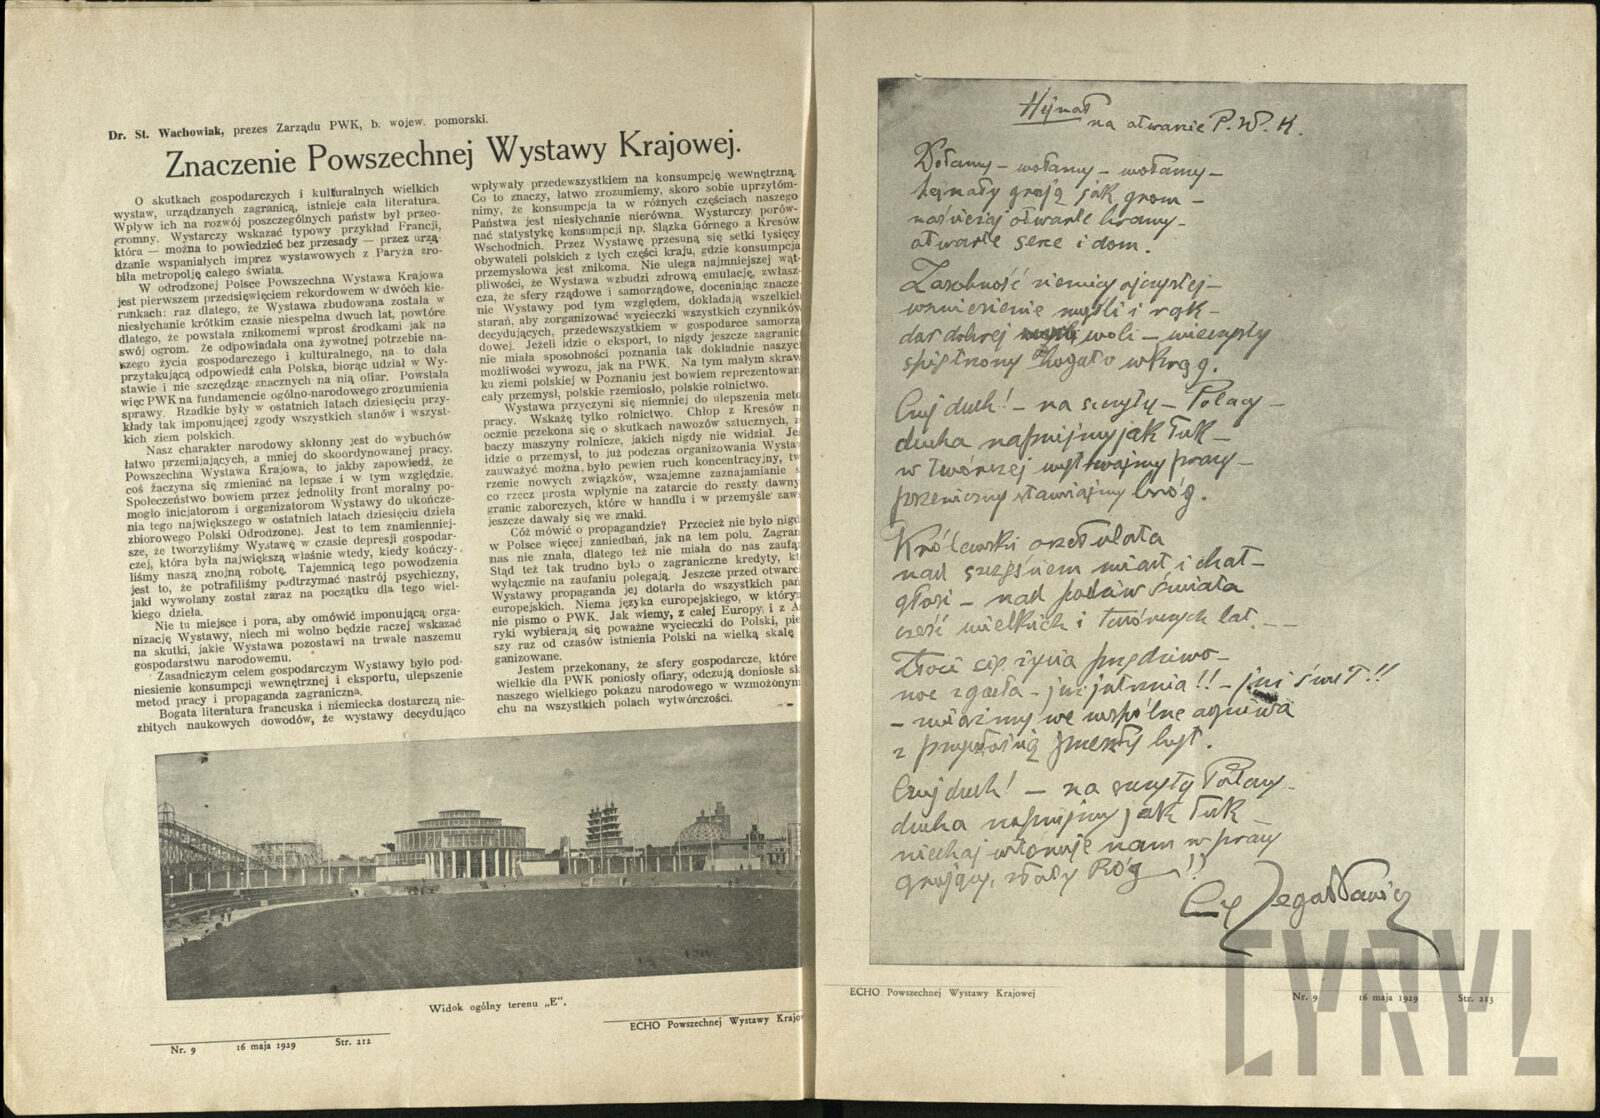 Dr. St. Wachowiak, prezes Zarządu PWK, b. wojew. pomorski.
Znaczenie Powszechnej Wystawy Krajowej.
O skutkach gospodarczych i kulturalnych wielkich
wystaw, urządzanych zagranicą, istnieje cała literatura.
Wpływ ich na rozwój poszczególnych państw był przeo-
gromny. Wystarczy wskazać typowy przykład Francji,
która — można to powiedzieć bez przesady — przez urzą-
dzanie wspaniałych imprez wystawowych z Paryża zro-
biła metropolję całego świata.
W odrodzonej Polsce Powszechna Wystawa Krajowa
jest pierwszem przedsięwięciem rekordowem w dwóch kie-
runkach: raz dlatego, że Wystawa zbudowana została w
niesłychanie krótkim czasie niespełna dwuch lat, powtóre
dlatego, że powstała znikomemi wprost środkami jak na
swój ogrom. że odpowiadała ona żywotnej potrzebie na-
szego życia gospodarczego i kulturalnego, na to dała
przytakującą odpowiedź cała Polska, biorąc udział w Wy-
stawie i nie szczędząc znacznych na nią ofiar. Powstała
więc PWK na fundamencie ogólno-narodowego zrozumienia
sprawy. Rzadkie były w ostatnich latach dziesięciu przy-
kłady tak imponującej zgody wszystkich stanów i wszyst-
kich ziem polskich.
Nasz charakter narodowy skłonny jest do wybuchów
łatwo przemijających, a mniej do skoordynowanej pracy.
Powszechna Wystawa Krajowa, to jakby zapowiedź, że
coś zaczyna się zmieniać na lepsze i w tym względzie.
Społeczeństwo bowiem przez jednolity front moralny po-
mogło inicjatorom i organizatorom Wystawy do ukończe-
nia tego największego w ostatnich latach dziesięciu dzieła
zbiorowego Polski Odrodzonej. Jest to tem znamienniej-
sze, że tworzyliśmy Wystawę w czasie depresji gospodar-
czej, która była największą właśnie wtedy, kiedy kończy-
liśmy naszą znojną robotę. Tajemnicą tego powodzenia
jest to, że potrafiliśmy podtrzymać nastrój psychiczny,
jaki wywołany został zaraz na początku dla tego wiel-
kiego dzieła.
Nie tu miejsce i pora, aby omówić imponującą orga-
nizację Wystawy, niech mi wolno będzie raczej wskazać
na skutki, jakie Wystawa pozostawi na trwałe naszemu
gospodarstwu narodowemu.
Zasadniczym celem gospodarczym Wystawy było pod-
niesienie konsumpcji wewnętrznej i eksportu, ulepszenie
metod pracy i propaganda zagraniczna.
Bogata literatura francuska i niemiecka dostarczą nie-
zbitych naukowych dowodów, że wystawy decydująco
wpływały przedewszystkiem na konsumpcję wewnętrzną.
Co to znaczy, łatwo zrozumiemy, skoro sobie uprzytom-
nimy, że konsumpcja ta w różnych częściach naszego
Państwa jest niesłychanie nierówna. Wystarczy porów-
nać statystykę konsumpcji np. Ślązka Górnego a Kresów
Wschodnich. Przez Wystawę przesuną się setki tysięcy
obywateli polskich z tych części kraju, gdzie konsumpcja
przemysłowa jest znikoma. Nie ulega najmniejszej wąt-
pliwości, że Wystawa wzbudzi zdrową emulację, zwłasz-
cza, że sfery rządowe i samorządowe, doceniając znacze-
nie Wystawy pod tym względem, dokładają wszelkich
starań, aby zorganizować wycieczki wszystkich czynników
decydujących, przedewszystkiem w gospodarce samorzą
dowej. Jeżeli idzie o eksport, to nigdy jeszcze zagranic
nie miała sposobności poznania tak dokładnie naszyc
możliwości wywozu, jak na PWK. Na tym małym skraw
ku ziemi polskiej w Poznaniu jest bowiem reprezentowan
cały przemysł, polskie rzemiosło, polskie rolnictwo.
Wystawa przyczyni się niemniej do ulepszenia meto
pracy. Wskażę tylko rolnictwo. Chłop z Kresów n
ocznie przekona się o skutkach nawozów sztucznych, z
baczy maszyny rolnicze, jakich nigdy nie widział. Je
idzie o przemysł, to już podczas organizowania Wystaw
zauważyć można było pewien ruch koncentracyjny, tw
rzenie nowych związków, wzajemne zaznajamianie s
co rzecz prosta wpłynie na zatarcie do reszty dawny
granic zaborczych, które w handlu i w przemyśle zaws
jeszcze dawały się we znaki.
Cóż mówić o propagandzie? Przecież nie było nigd
w Polsce więcej zaniedbań, jak na tem polu. Zagran
nas nie znała, dlatego też nie miała do nas zaufa
Stąd też tak trudno było o zagraniczne kredyty, kt
wyłącznie na zaufaniu polegają. Jeszcze przed otwarc
Wystawy propaganda jej dotarła do wszystkich pań
europejskich. Niema języka europejskiego, w którym
nie pismo o PWK. Jak wiemy, z całej Europy i z A
ryki wybierają się poważne wycieczki do Polski, pie
szy raz od czasów istnienia Polski na wielką skalę
ganizowane.
Jestem przekonany, że sfery gospodarcze, które
wielkie dla PWK poniosły ofiary, odczują doniosłe sk
naszego wielkiego pokazu narodowego w wzmożonym
chu na wszystkich polach wytwórczości.
Widok ogólny terenu „E".
ECHO Powszechnej Wystawy Krajo
Nr. 9 16 maja 1929 Str. 212
Hejnał
na otwarcie P. W. K.
Wołamy — wołamy — wołamy —
hejnały grają jak grom —
naścieżaj otwarte bramy —
otwarte serce i dom.
Zasobność ziemicy ojczystej —
wzniesienie myśli i rąk —
dar dobrej woli — wieczysty
spiętrzony bogato w krąg.
Czuj duch! — na szczyty — Polacy —
ducha napnijmy jak łuk —
w twórczej wytrwajmy pracy —
pszeniczny stawiajmy bróg.
Królewski orzeł ulata
nad szczęściem miast i chat —
głosi — nad podziw świata
cześć wielkich i twórczych lat. — —
Złoci się życia przędziwo —
noc zgasła — już jutrznia!! — już świt!!
— we wspólne ogniwa
z przeszłością byt.
Czuj duch! — na szczyty Polacy —
ducha napnijmy jak łuk —
niechaj wtóruje nam w pracy
grający, złoty Róg!!
Zegadłowicz
ECHO Powszechnej Wystawy Krajowej
Nr. 9 16 maja 1929 Str. 213
CYRYL